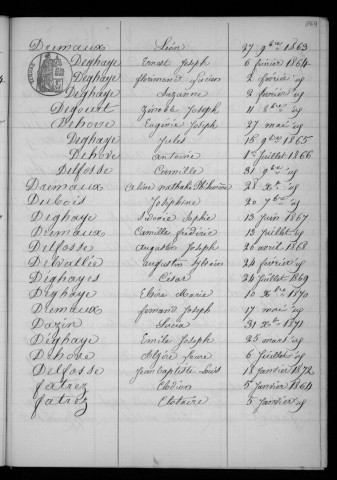 Demaux Léon 27 9bre 1863
Deghaye Ernest Joseph 6 février 1864
Deghaye florimond Lucien 2 février id
Deghaye Suzanne 2 février id
Degouit Zénobie Joseph 11 8bre id
Dehove Eugénie Joseph 27 mai id
Deghaye Jules 15 9bre 1865
Dehove Antoine 1er Juillet 1866
Delfosse Camille 31 9bre id
Demaux Céline Nathalie Philomène 28 Xbre id
Dubois Joséphine 20 7bre id
Deghaye Sidonie Sophie 13 Juin 1867
Demaux Camille frédéric 13 Juillet id
Delfosse Augustin Joseph 26 avril 1868
Delvallée Augustin Sylvain 24 février id
Deghayes César 24 Juillet 1869
Deghaye Elvire Marie 10 Xbre 1870
Demaux fernand Joseph 17 mai id
Dazin Lucia 31 Xbre 1871
Deghaye Emile Joseph 25 mars id
Dehove Alzire Laure 6 Juillet id
Delfosse Jean Baptiste Louis 18 Janvier 1872
fatrez Elodien 5 Janvier 1864
fatrez Clotaire 5 Janvier id